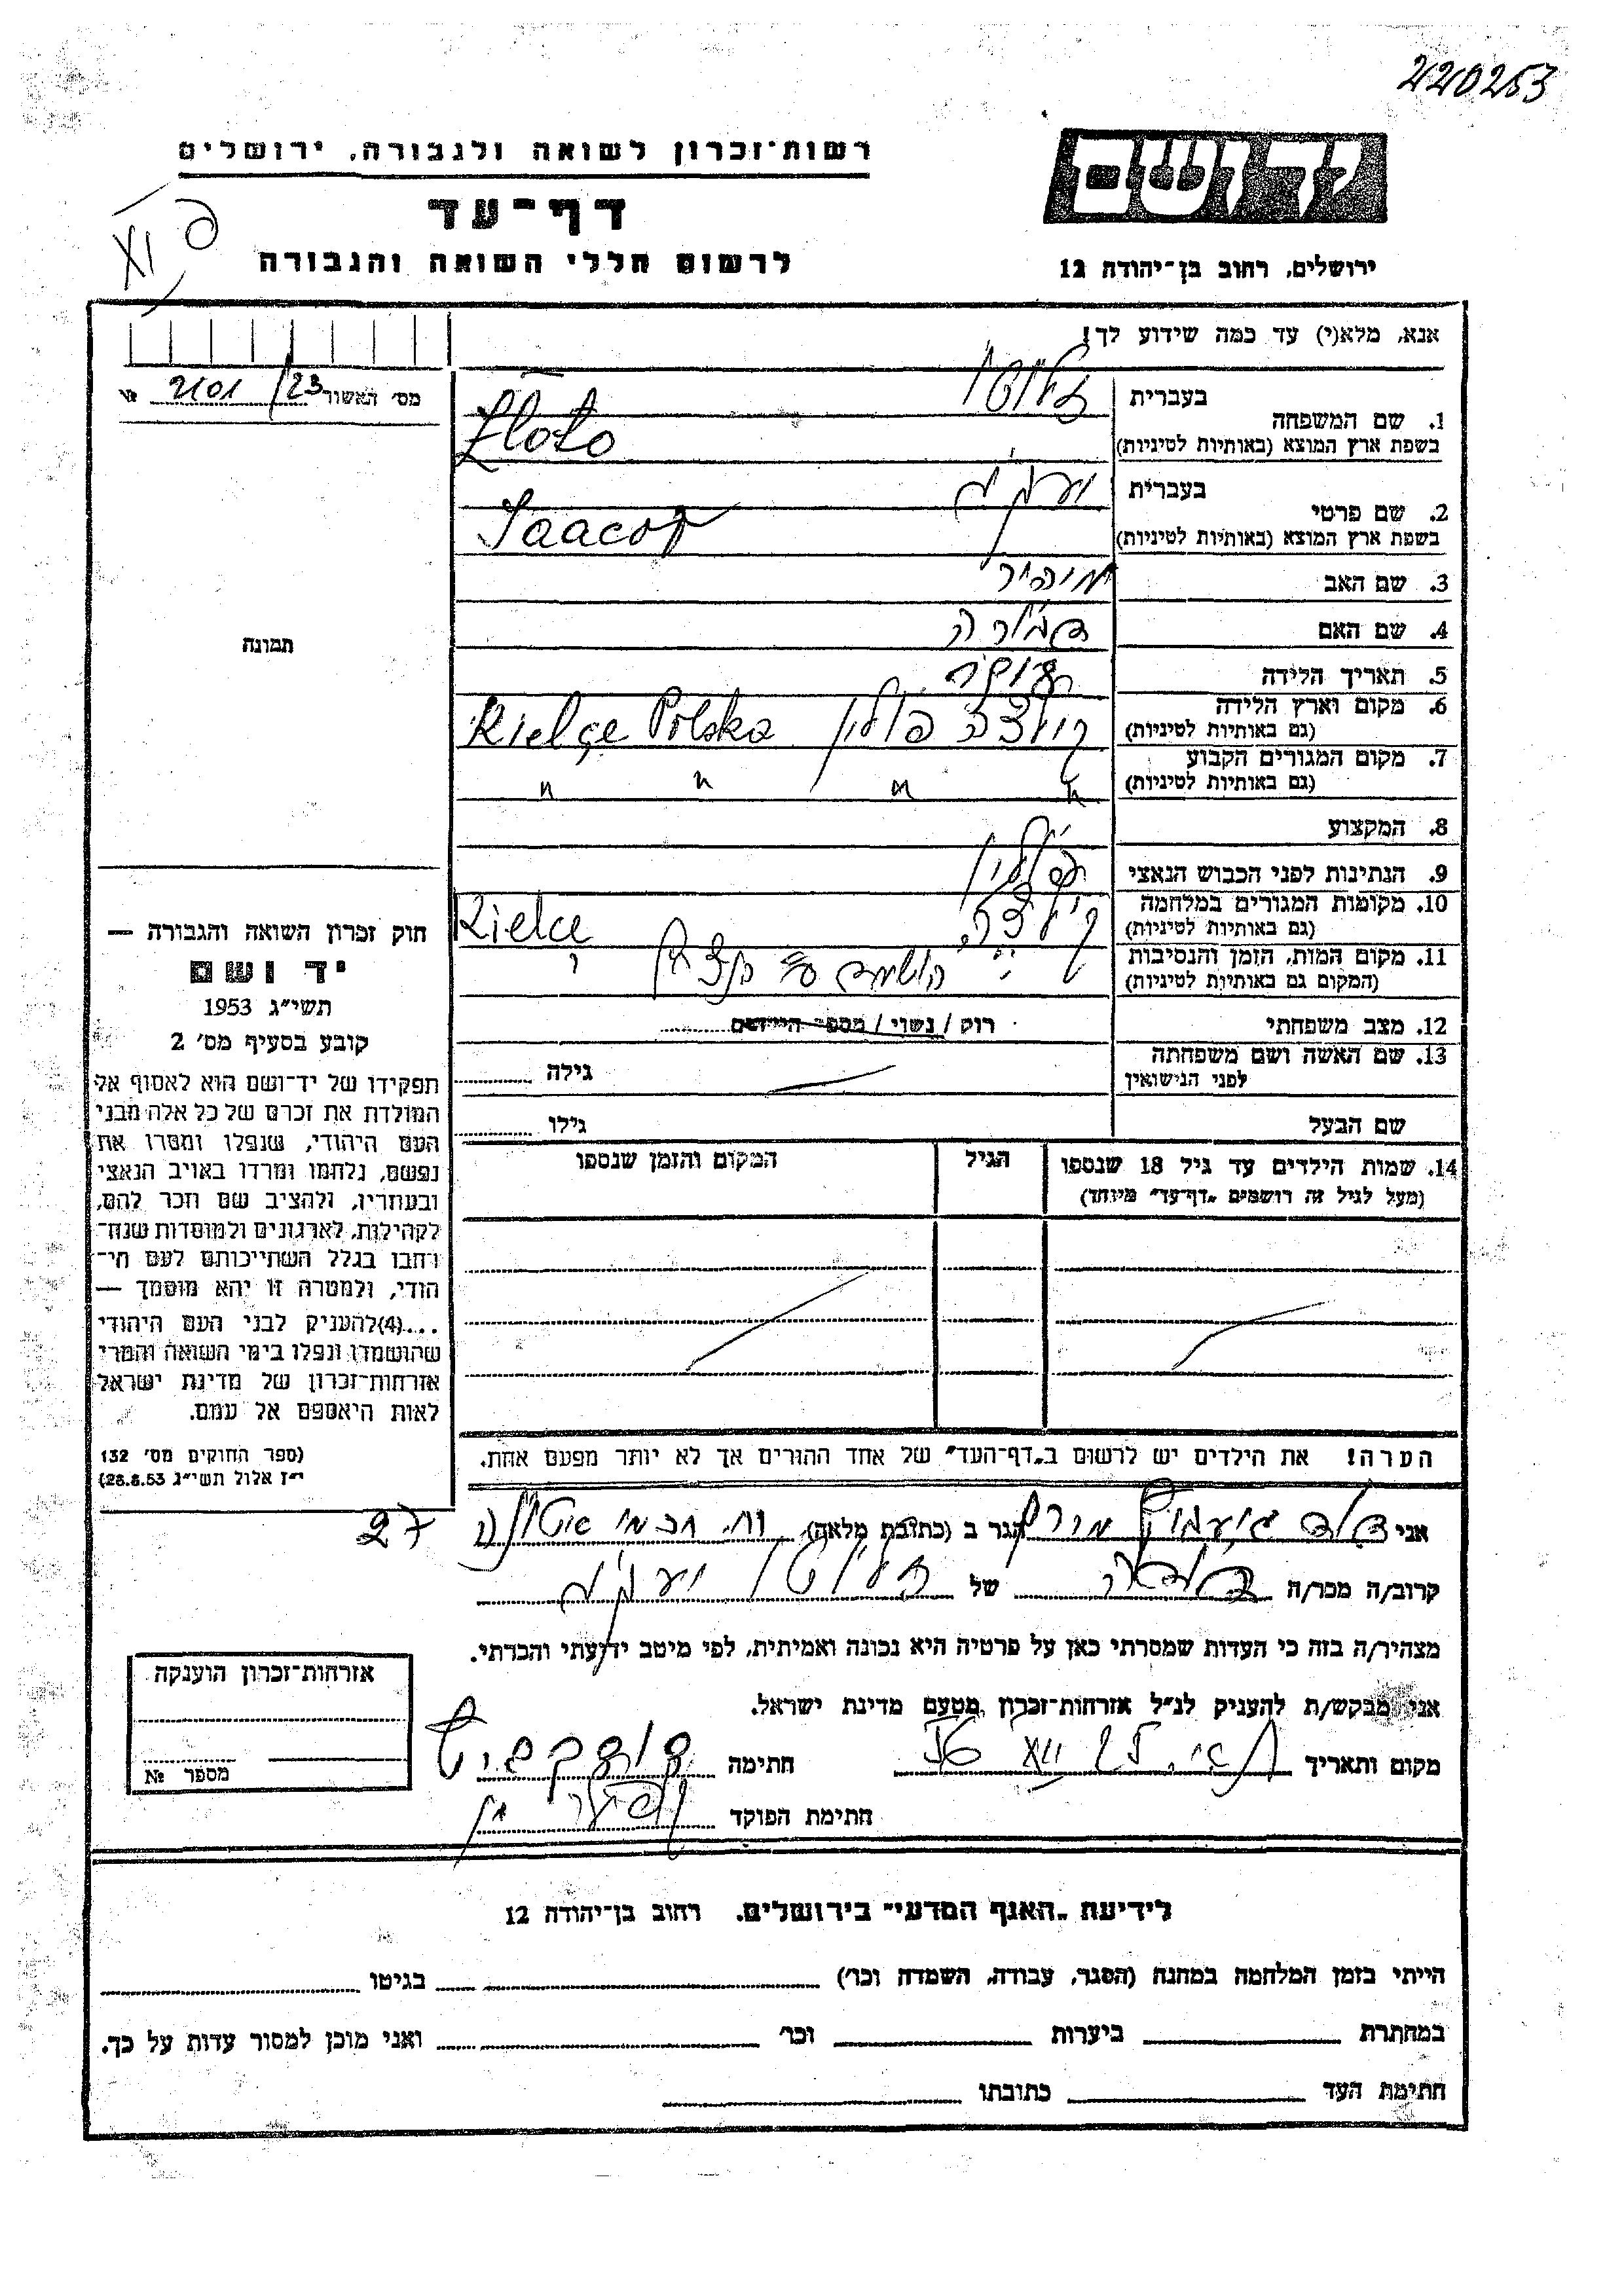 220253
רשות־זכרון לשואה ולגבורה, ירושלים
דף־עד
לרשום חללי השואה והגבורה
יד ושם
ירושלים, רחוב בן־יהודה 12
אנא, מלא(י) עד כמה שידוע לך!
מס׳ האשור 2101/23 №
1. שם המשפחה
בעברית זלוטו
בשפת ארץ המוצא (באותיות לטיניות) Zloto
2. שם פרטי
בעברית יעקב
בשפת ארץ המוצא (באותיות לטיניות) Jaacov
3. שם האב מאיר
4. שם האם דבורה
5. תאריך הלידה
6. מקום וארץ הלידה (גם באותיות לטיניות) קילצה פולין Kielce Polska
7. מקום המגורים הקבוע (גם באותיות לטיניות) " " " "
8. המקצוע
9. הנתינות לפני הכבוש הנאצי פולין
10. מקומות המגורים במלחמה (גם באותיות לטיניות) קילצה Kielce
11. מקום המות, הזמן והנסיבות (המקום גם באותיות לטיניות)
12. מצב משפחתי רוק / נשוי / מספר הילדים
13. שם האשה ושם משפחתה לפני הנישואין גילה
שם הבעל גילו
14. שמות הילדים עד גיל 18 שנספו
(מעל לגיל זה רושמים „דף־עד״ מיוחד)
הגיל
המקום והזמן שנספו
תמונה
חוק זכרון השואה והגבורה —
יד ושם
תשי״ג 1953
קובע בסעיף מס׳ 2
תפקידו של יד־ושם הוא לאסוף אל
המולדת את זכרם של כל אלה מבני
העם היהודי, שנפלו ומסרו את
נפשם, נלחמו ומרדו באויב הנאצי
ובעוזריו, ולהציב שם וזכר להם,
לקהילות, לארגונים ולמוסדות שנח־
רבו בגלל השתייכותם לעם הי־
הודי, ולמטרה זו יהא מוסמך —
...(4) להעניק לבני העם היהודי
שהושמדו ונפלו בימי השואה והמרי
אזרחות־זכרון של מדינת ישראל
לאות היאספם אל עמם.
(ספר החוקים מס׳ 132
י״ז אלול תשי״ג 28.8.53)
הערה! את הילדים יש לרשום ב„דף־העד״ של אחד ההורים אך לא יותר מפעם אחת.
אני הגר ב (כתובת מלאה) 27
קרוב/ה מכר/ה של זלוטו יעקב
מצהיר/ה בזה כי העדות שמסרתי כאן על פרטיה היא נכונה ואמיתית, לפי מיטב ידיעתי והכרתי.
אני מבקש/ת להעניק לנ״ל אזרחות־זכרון מטעם מדינת ישראל.
מקום ותאריך חתימה
חתימת הפוקד
אזרחות־זכרון הוענקה
מספר №
לידיעת „האגף המדעי״ בירושלים, רחוב בן־יהודה 12
הייתי בזמן המלחמה במחנה (הסגר, עבודה, השמדה וכו׳) בגיטו
במחתרת ביערות וכו׳ ואני מוכן למסור עדות על כך.
חתימת העד כתובתו